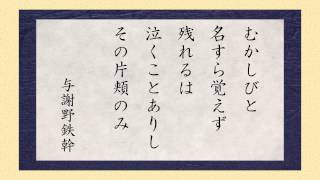 むかしびと
名すら覚えず
残れるは
泣くことありし
その片頬のみ
与謝野鉄幹